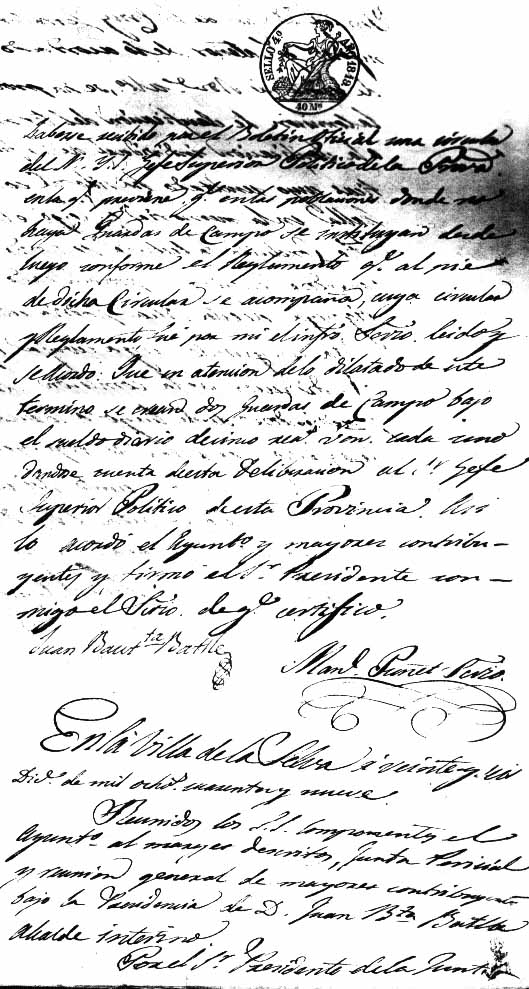 SELLO 4º AÑO 1849
40 Ms
haberse recibido por el Boletin Oficial una circular
del M. Y. S. Gefe Superior Politico de la Prova
en la q.e previene q.e en las poblaciones donde no
haya Guardas de Campo se instituyan desde
luego conforme el Reglamento q.e al pie
de dicha Circular se acompaña, cuya circular
y Reglamento fué por mi el infro Srio. leido y
sellado. Que en atencion de lo dilatado de este
termino se crean dos Guardas de Campo bajo
el sueldo diario de cinco rea.s von. cada uno
dandose cuenta de esta deliberacion al Sr Gefe
Superior Politico de esta Provincia. Asi
lo acordó el Ayunt.o y mayores contribu-
yentes y firmó el Sr. Presidente con-
migo el Srio. de q.e certifico.
Juan Baut.ta Batlle
Man.l Puñet Srio.
En la Villa de la Selva á veinte y
Dic.e de mil ocho.s cuarenta y nueve.
Reunidos los S.S. componentes el
Ayunt.o al margen descritos, Junta Pericial
y reunion general de mayores contribuyentes
bajo la Presidencia de D. Juan B.ta Batlle
alcalde interino
Por el Sr. Presidente de la Junta